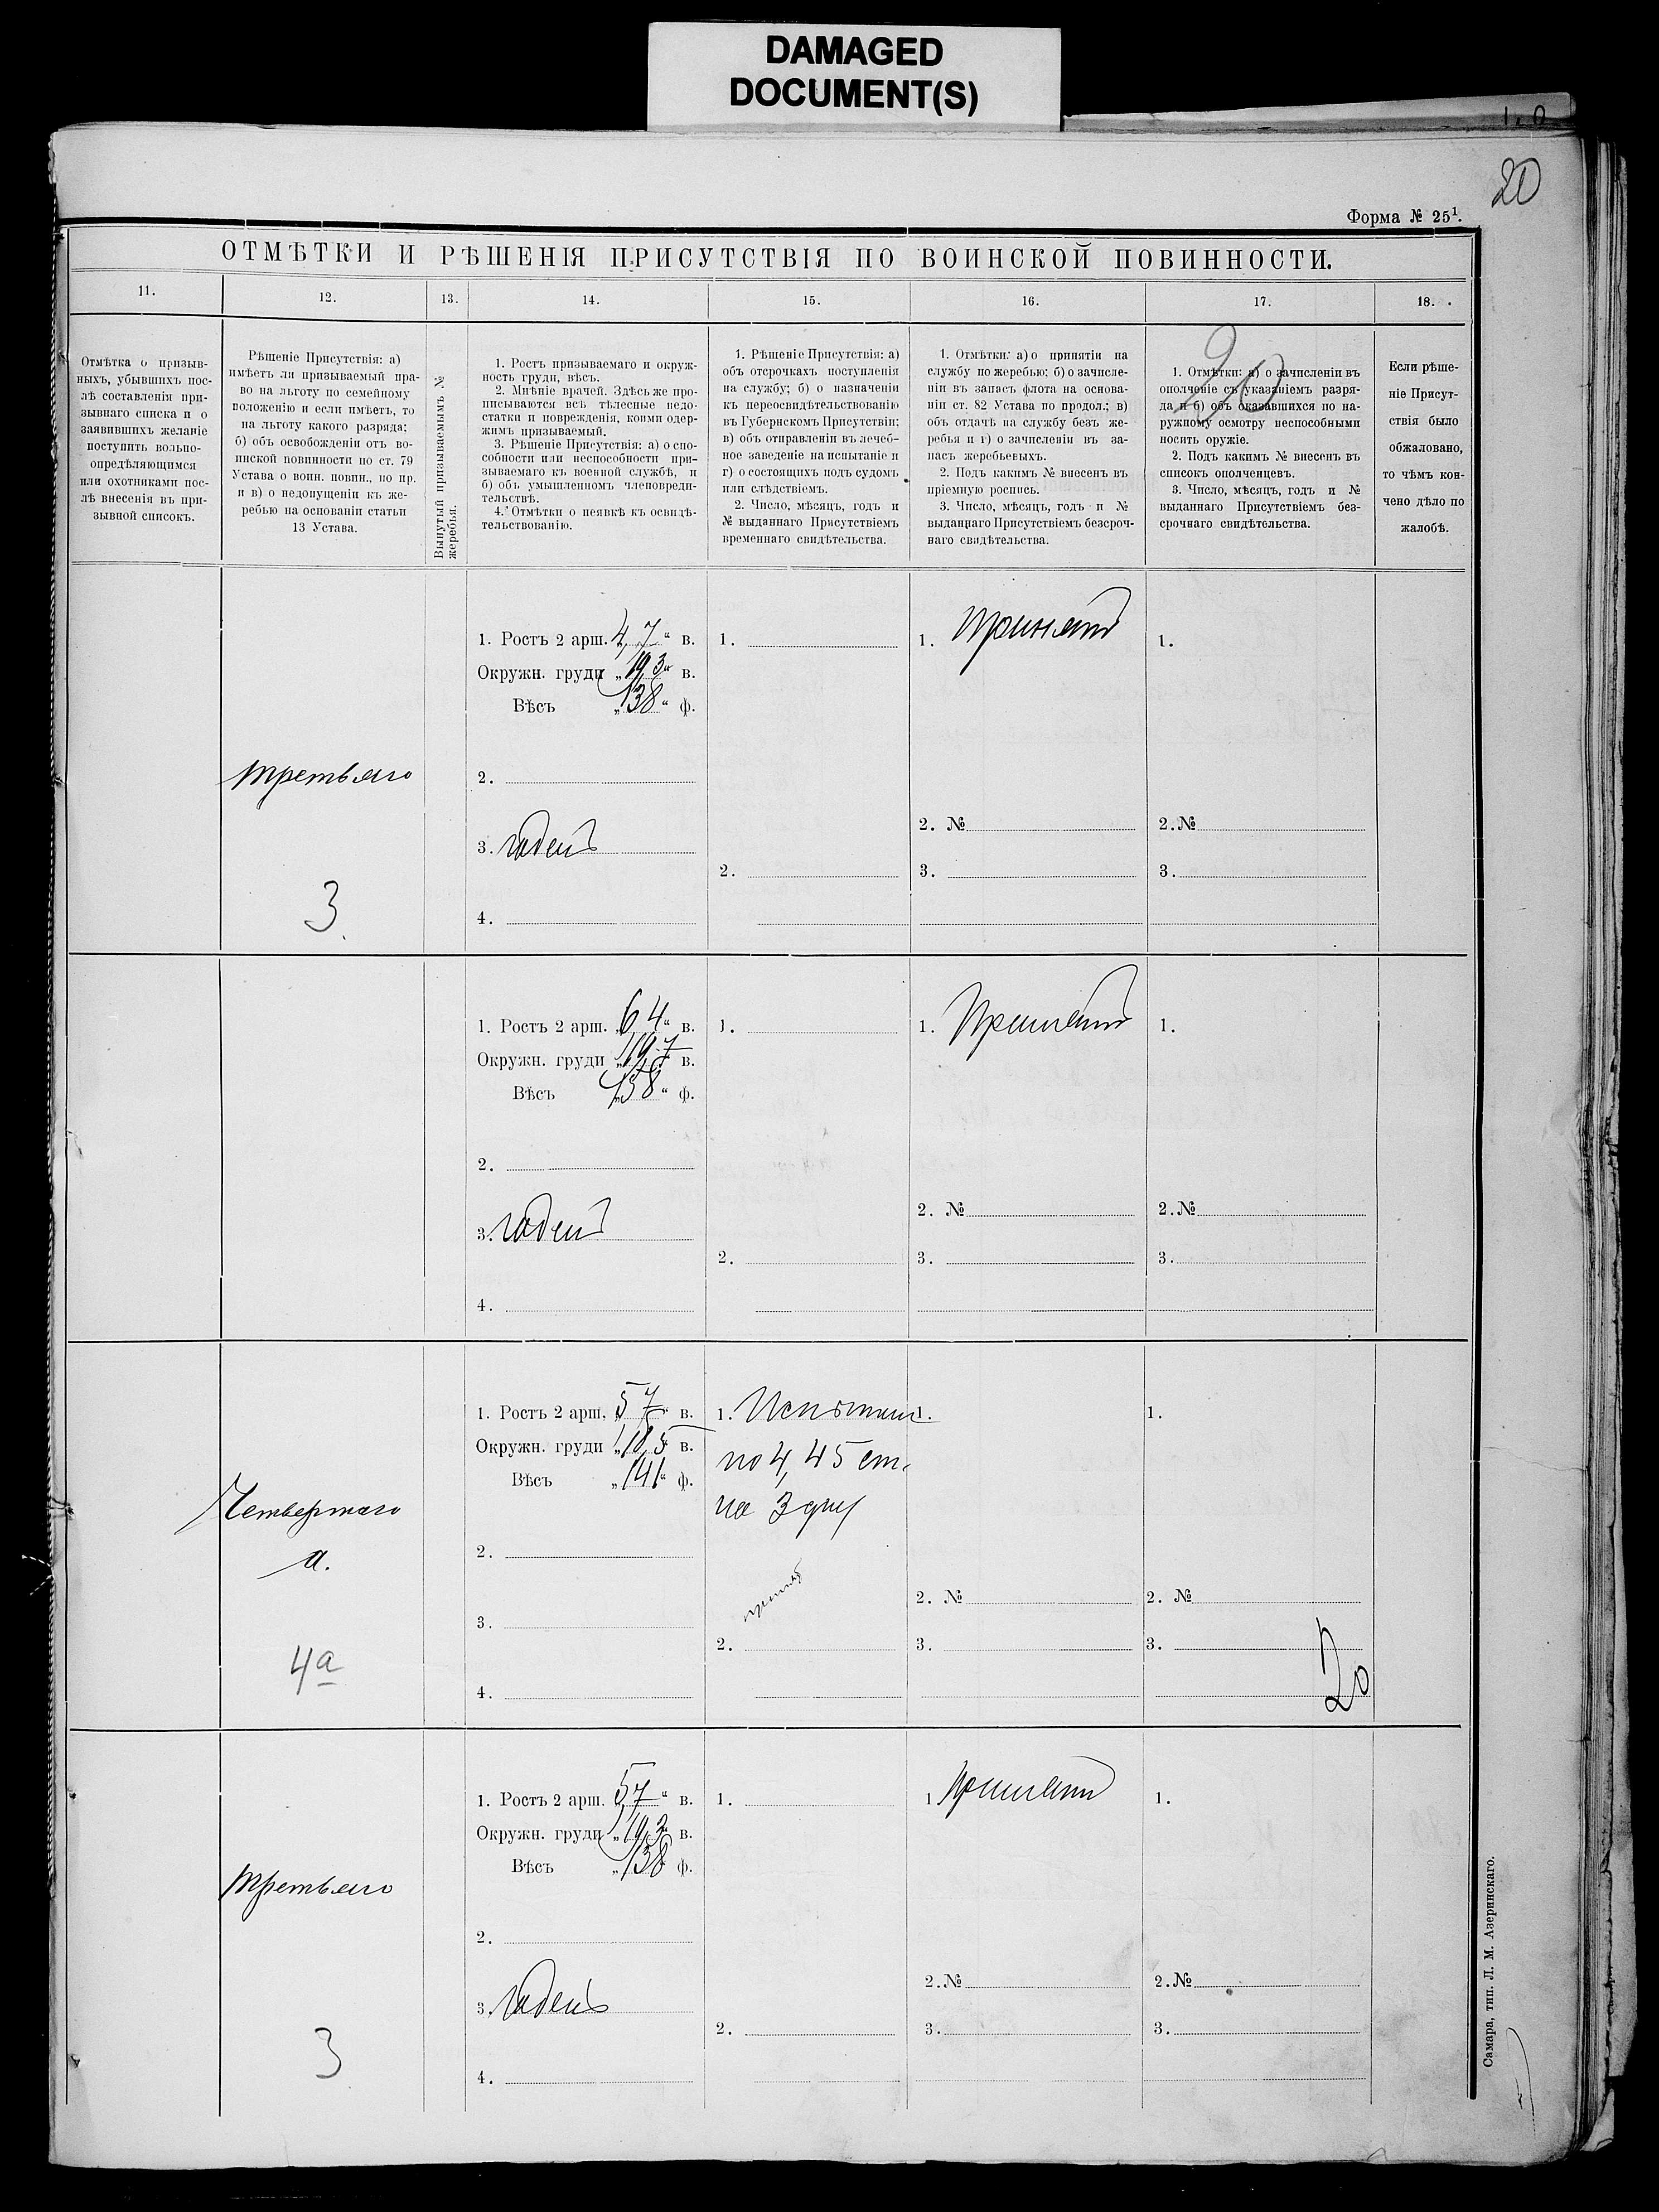 DAMAGED
DOCUMENT(S)
20
Форма № 25¹.
ОТМѢТКИ И РѢШЕНІЯ ПРИСУТСТВІЯ ПО ВОИНСКОЙ ПОВИННОСТИ.
11.
12.
13.
14.
15.
16.
17.
18.
Отмѣтка о призыв-
ныхъ, убывшихъ пос-
лѣ составленія при-
зывнаго списка и о
заявившихъ желаніе
поступить вольно-
опредѣляющимся
или охотниками пос-
лѣ внесенія въ при-
зывной списокъ.
Рѣшеніе Присутствія: а)
имѣетъ ли призываемый пра-
во на льготу по семейному
положенію и если имѣетъ, то
на льготу какого разряда;
б) объ освобожденіи отъ во-
инской повинности по ст. 79
Устава о воин. повин., по пр.
и в) о недопущеніи къ же-
ребью на основаніи статьи
13 Устава.
Вынутый призываемымъ №
жеребья.
1. Ростъ призываемаго и окруж-
ность груди, вѣсъ.
2. Мнѣніе врачей. Здѣсь же про-
писываются всѣ тѣлесные недо-
статки и поврежденія, коими одер-
жимъ призываемый.
3. Рѣшеніе Присутствія: а) о спо-
собности или неспособности при-
зываемаго къ военной службѣ, и
б) объ умышленномъ членовреди-
тельствѣ.
4. Отмѣтки о неявкѣ къ освидѣ-
тельствованію.
1. Рѣшеніе Присутствія: а)
объ отсрочкахъ поступленія
на службу; б) о назначеніи
къ переосвидѣтельствованію
въ Губернскомъ Присутствіи;
в) объ отправленіи въ лечеб-
ное заведеніе на испытаніе и
г) о состоящихъ подъ судомъ
или слѣдствіемъ.
2. Число, мѣсяцъ, годъ и
№ выданнаго Присутствіемъ
временнаго свидѣтельства.
1. Отмѣтки: а) о принятіи на
службу по жеребью; б) о зачисле-
ніи въ запасъ флота на основа-
ніи ст. 82 Устава по продол.; в)
объ отдачѣ на службу безъ же-
ребья и г) о зачисленіи въ за-
пасъ жеребьевыхъ.
2. Подъ какимъ № внесенъ въ
пріемную роспись.
3. Число, мѣсяцъ, годъ и №
выданнаго Присутствіемъ безсроч-
наго свидѣтельства.
20
1. Отмѣтки: а) о зачисленіи въ
ополченіе съ указаніемъ разря-
да и б) объ оказавшихся по на-
ружному осмотру неспособными
носить оружіе.
2. Подъ какимъ № внесенъ въ
списокъ ополченцевъ.
3. Число, мѣсяцъ, годъ и №
выданнаго Присутствіемъ без-
срочнаго свидѣтельства.
Если рѣше-
ніе Присут-
ствія было
обжаловано,
то чѣмъ кон-
чено дѣло по
жалобѣ.
третьяго
3
1. Ростъ 2 арш. 4,7 в.
Окружн. груди „19 3“ в.
Вѣсъ „138“ ф.
2.
3. годенъ
4.
1.
2.
1. Принятъ
2. №
3.
1.
2. №
3.
1. Ростъ 2 арш. „6 4“ в.
Окружн. груди „19 7 в.
Вѣсъ „158“ ф.
2.
3. годенъ
4.
1.
2.
1. Принятъ
2. №
3.
1.
2. №
3.
Четвертаго
а.
4а
1. Ростъ 2 арш. 5 7 в.
Окружн. груди „18,5 в.
Вѣсъ „141“ ф.
2.
3.
4.
1. Испытан
по 4, 45 ст.
на
принятъ
2.
1.
2. №
3.
1.
2. №
3.
20
третьяго
3
1. Ростъ 2 арш. 57“ в.
Окружн. груди „19,3 в.
Вѣсъ „138 ф.
2.
3. годенъ
4.
1.
2.
1 Принятъ
2. №
3.
1.
2. №
3.
Самара, тип. Л. М. Азеринскаго.